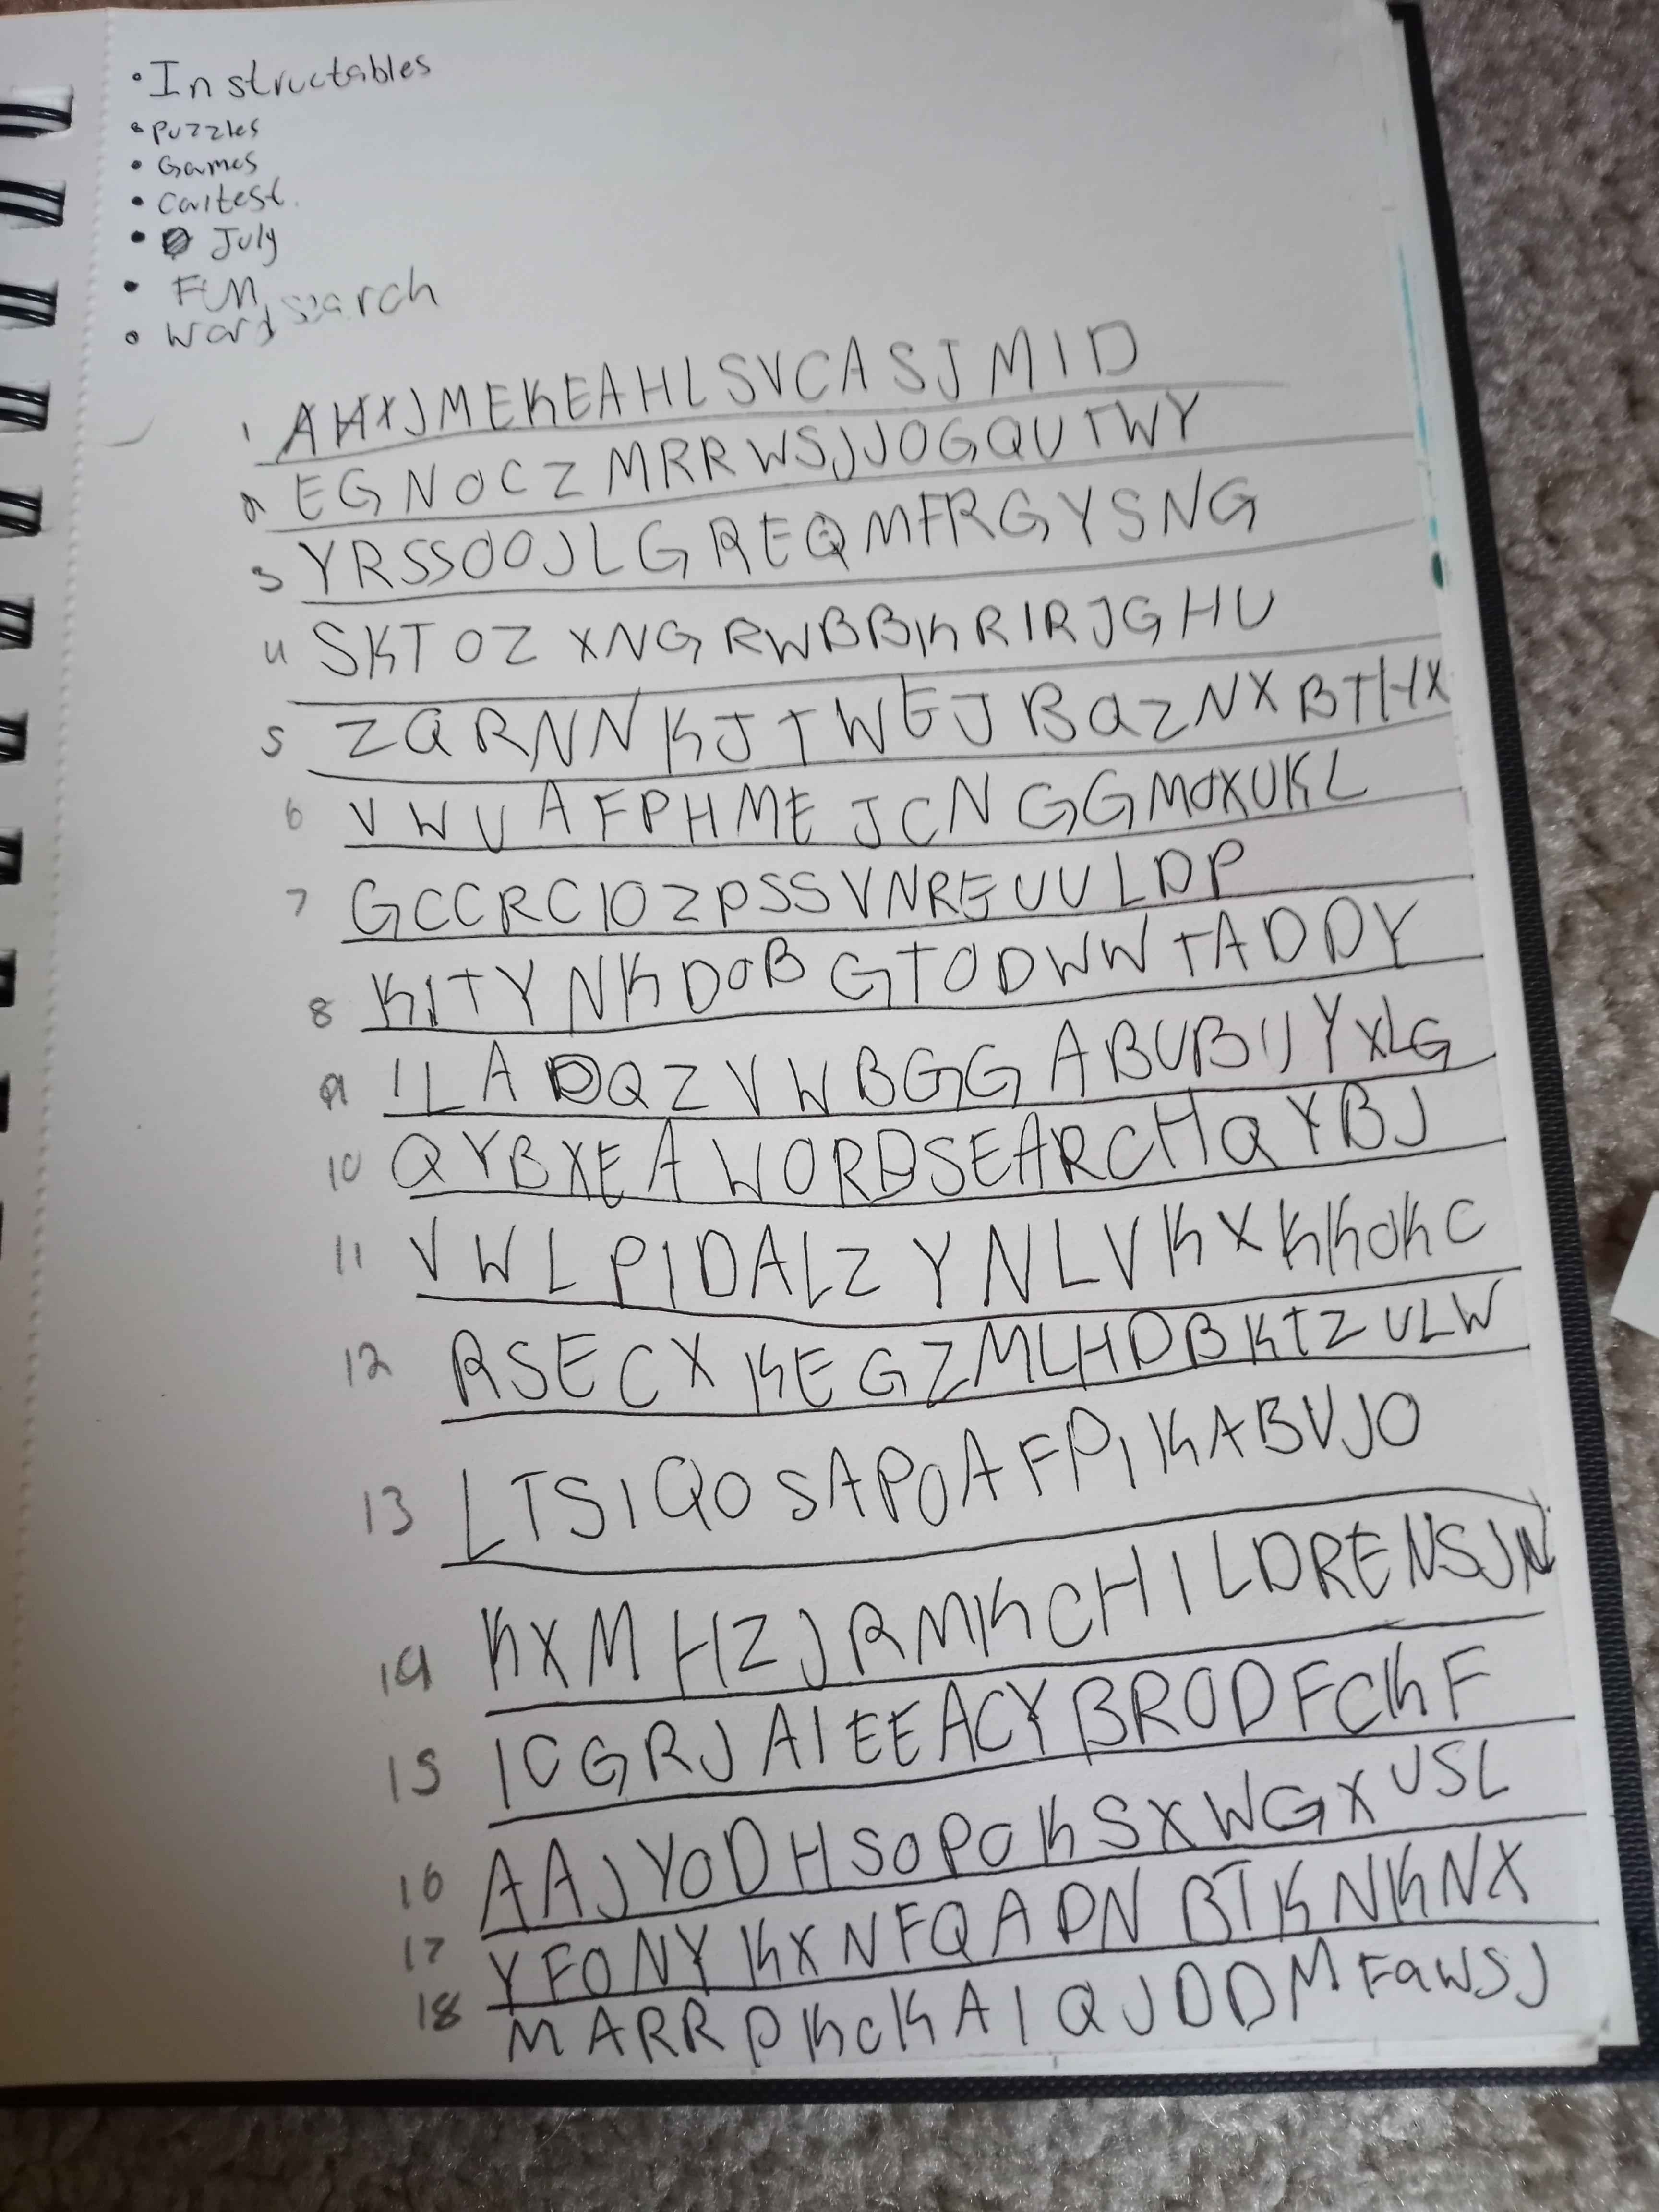 • Instructables
• Puzzles
• Games
• Contest.
• July
• Fun
• word search
1 AHXJMEKEAHLSVCASJMID
2 EGNOCZMRRWSJJOGQUTWY
3 YRSSOOJLGREQMFRGYSNG
4 SKTOZXNGRWBBKRIRJGHU
5 ZQRNNKJTWEJBQZNXBTHX
6 VWUAFPHMEJCNGGMOXUKL
7 GCCRCIOZPSSVNREUULDP
8 KITYNKDOBGTODWWTADDY
9 ILADQZVWBGGABUBIJYXLG
10 QYBXEAWORDSEARCHQYBJ
11 VWLPIDALZYNLVKXKKOKC
12 RSECXKEGZMLHDBKTZULW
13 LTSIQOSAPOAFPIKABVJO
14 KXMHZJRMKCHILDRENSJN
15 ICGRJAIEEACYBRODFCKF
16 AAJYODHSOPOKSXWGXUSL
17 YFONYKXNFQADNBTKNKNX
18 MARRPKCKAIQJDDMFQWSJ